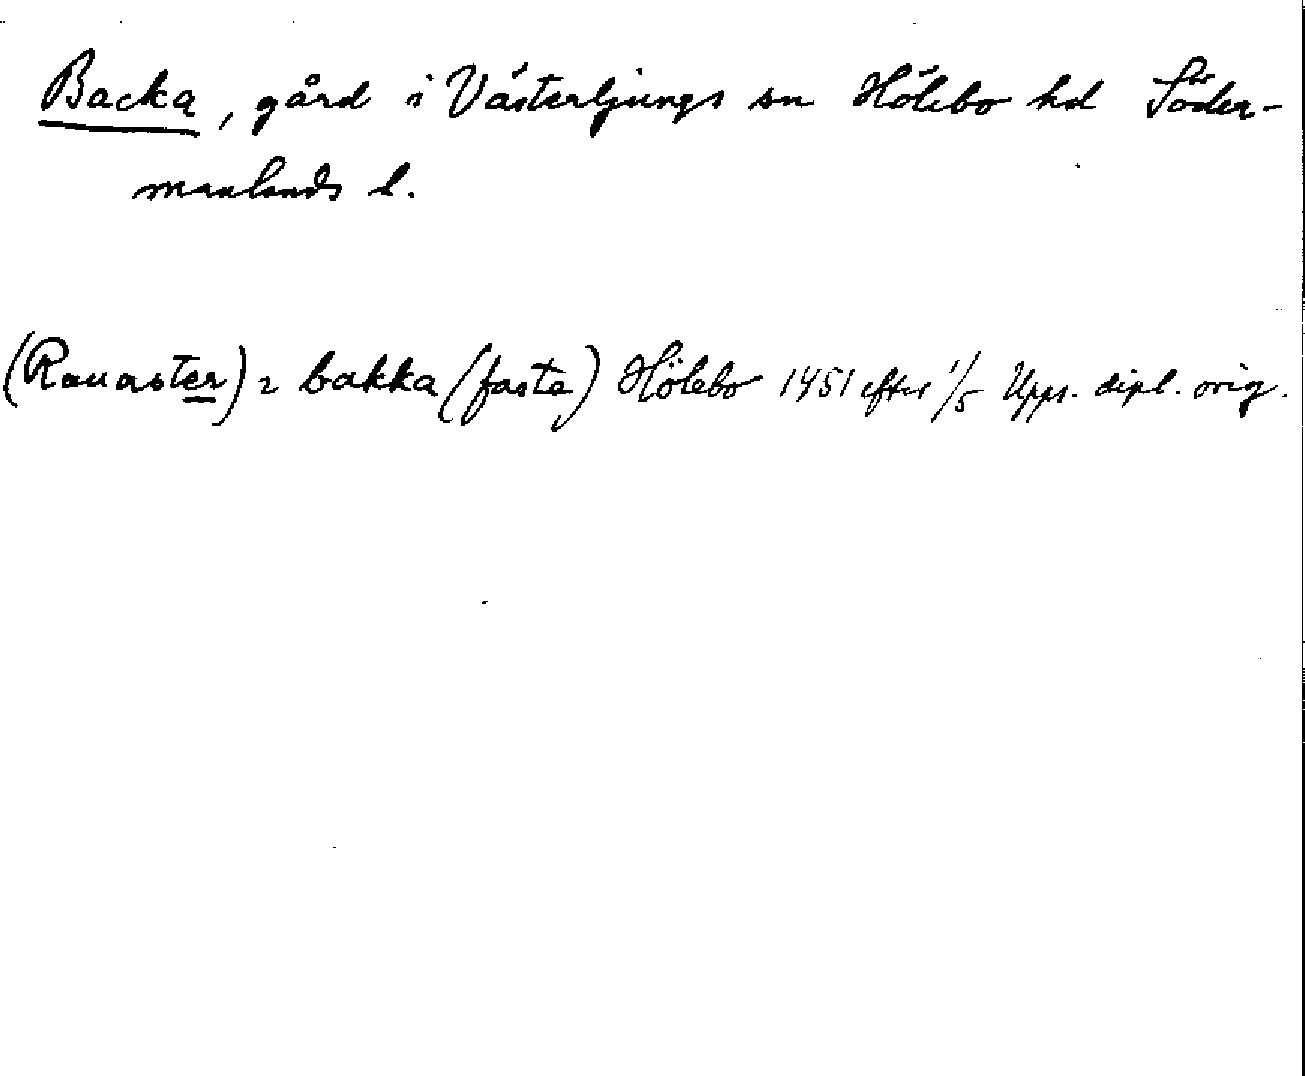 Backa, gård i Västerljungs sn Hölebo hd Söder-
manlands l.
(Rauaster) i bakka (fasta) Hölebo 1451 efter 1/5 Upps. dipl. orig.